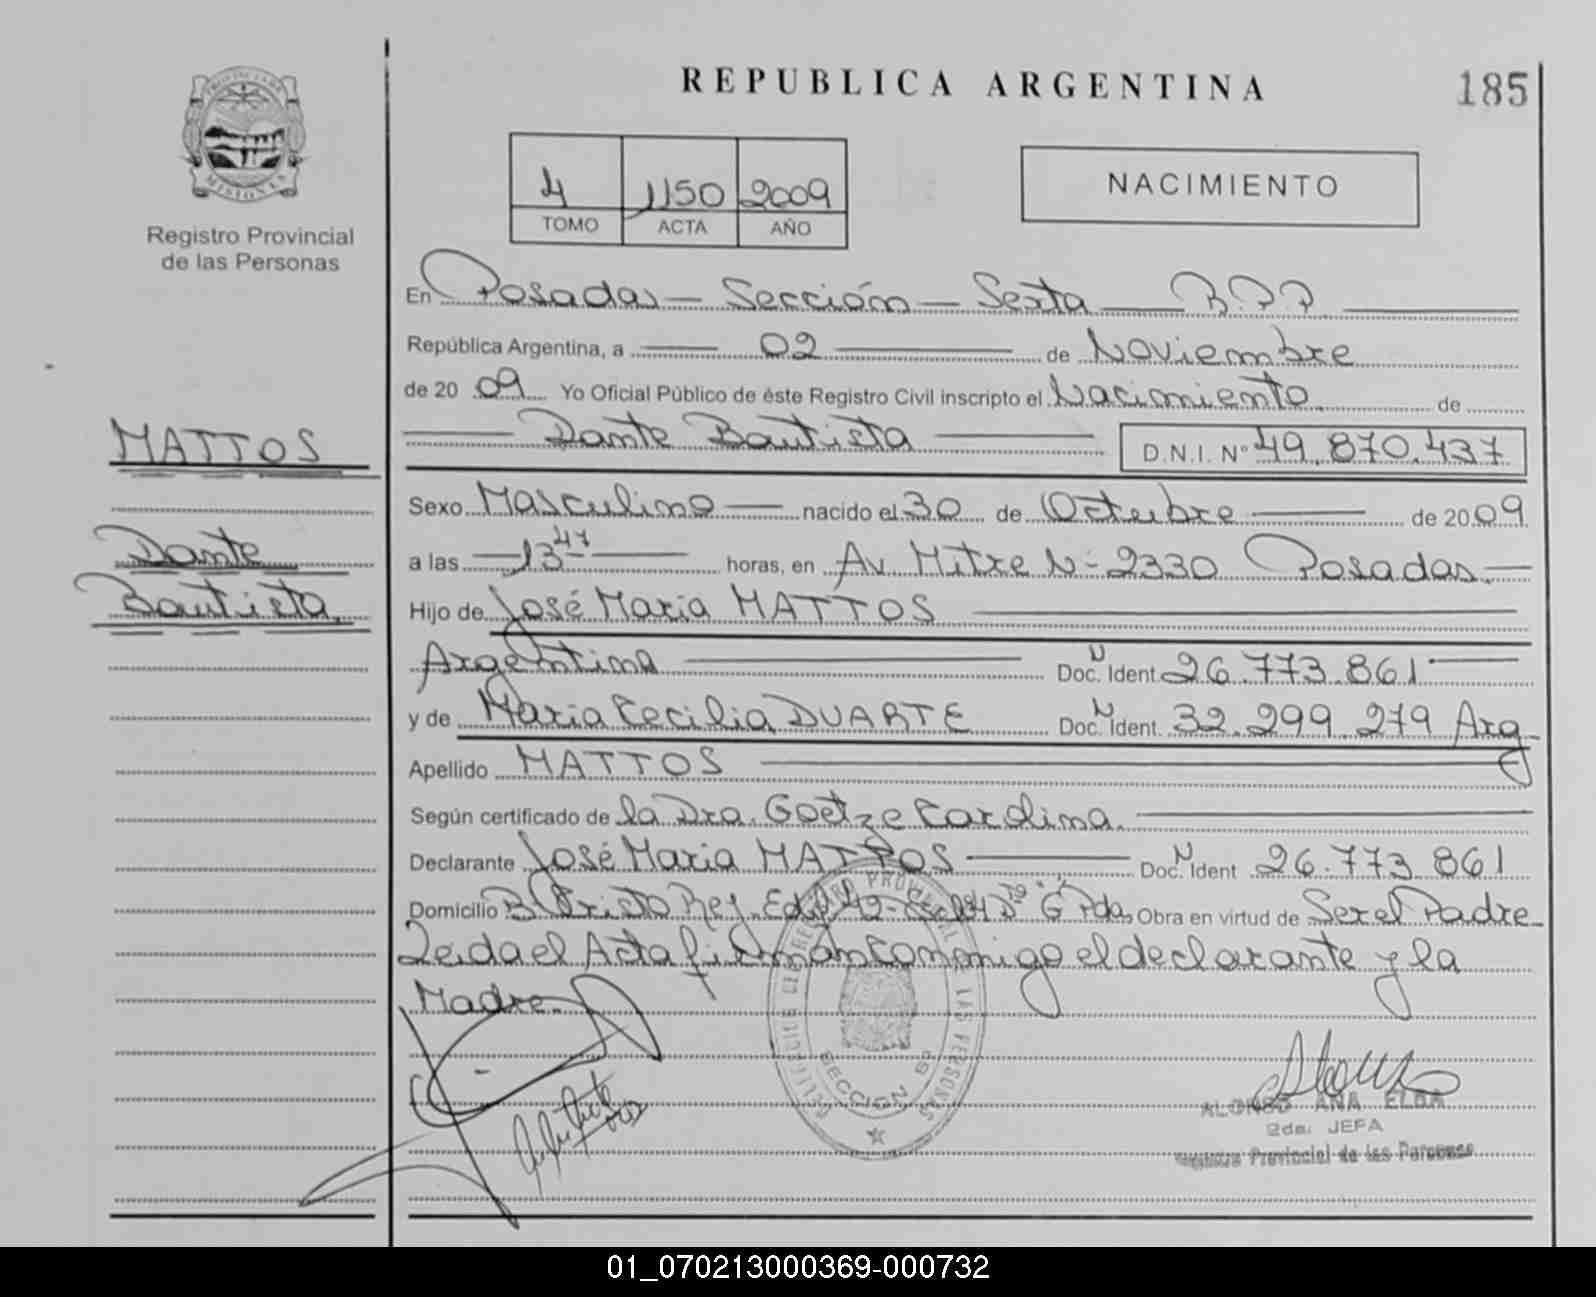 REPUBLICA ARGENTINA
185
PROVINCIA DE
MISIONES
Registro Provincial
de las Personas
4 1150 2009
TOMO ACTA AÑO
NACIMIENTO
En Posadas - Sección - Sexta B.P.P.
República Argentina, a 02 de Noviembre
de 20 09 Yo Oficial Público de éste Registro Civil inscripto el Nacimiento de
Dante Bautista D.N.I. Nº 49.870.437
MATTOS
Dante
Bautista
Sexo Masculino nacido el 30 de Octubre de 20 09
a las 13 47 horas, en Av. Mitre N- 2330 Posadas.-
Hijo de José María MATTOS
Argentino Doc. Ident. 26.773.861
y de María Cecilia DUARTE Doc. Ident. 32.299.279 Arg
Apellido MATTOS
Según certificado de la Dra. Goetze Carolina.
Declarante José María MATTOS Doc. Ident 26.773.861
Domicilio B. Cristo Rey. Edif. "G" Pdas Obra en virtud de Ser el Padre
Leida el Acta firman conmigo el declarante y la
Madre.
REGISTRO PROVINCIAL DE LAS PERSONAS
SECCION 6ª
ALONSO ANA ELBA
2da. JEFA
Registro Provincial de las Personas
01_070213000369-000732